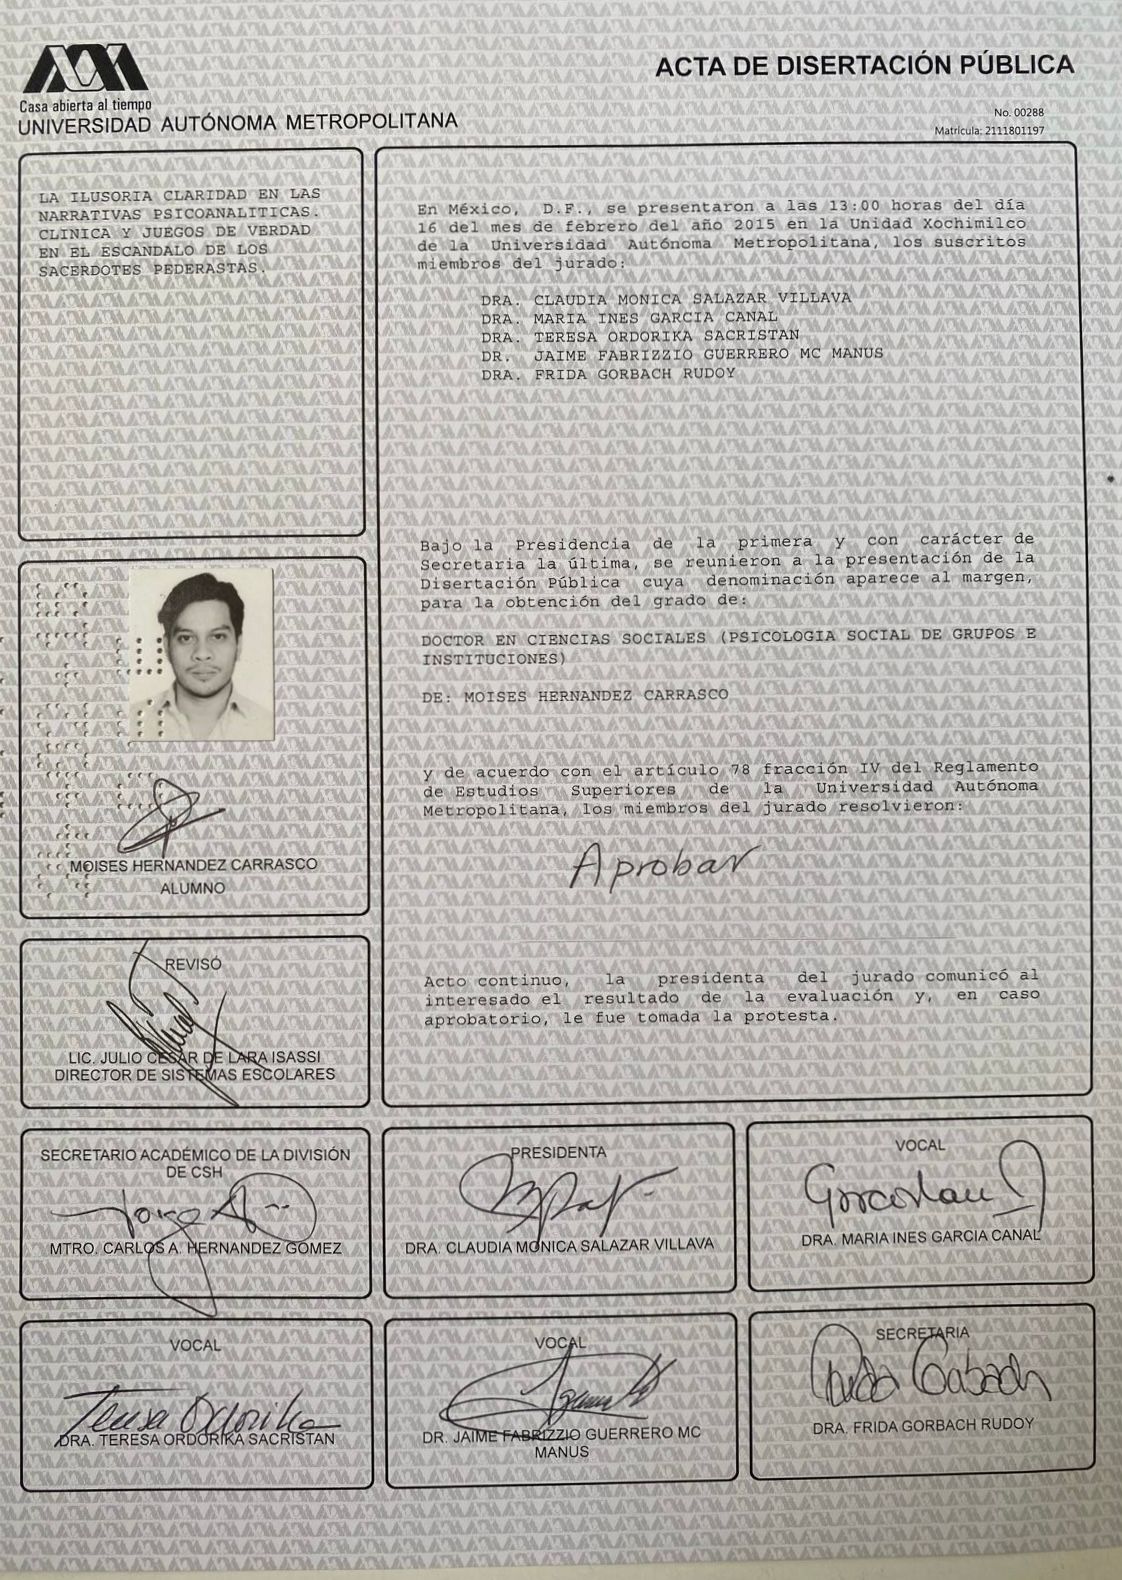 Casa abierta al tiempo
UNIVERSIDAD AUTÓNOMA METROPOLITANA
ACTA DE DISERTACIÓN PÚBLICA
No. 00288
Matrícula: 2111801197
LA ILUSORIA CLARIDAD EN LAS
NARRATIVAS PSICOANALITICAS.
CLINICA Y JUEGOS DE VERDAD
EN EL ESCANDALO DE LOS
SACERDOTES PEDERASTAS.
En México, D.F., se presentaron a las 13:00 horas del día
16 del mes de febrero del año 2015 en la Unidad Xochimilco
de la Universidad Autónoma Metropolitana, los suscritos
miembros del jurado:
DRA. CLAUDIA MONICA SALAZAR VILLAVA
DRA. MARIA INES GARCIA CANAL
DRA. TERESA ORDORIKA SACRISTAN
DR. JAIME FABRIZZIO GUERRERO MC MANUS
DRA. FRIDA GORBACH RUDOY
Bajo la Presidencia de la primera y con carácter de
Secretaria la última, se reunieron a la presentación de la
Disertación Pública cuya denominación aparece al margen,
para la obtención del grado de:
DOCTOR EN CIENCIAS SOCIALES (PSICOLOGIA SOCIAL DE GRUPOS E
INSTITUCIONES)
DE: MOISES HERNANDEZ CARRASCO
y de acuerdo con el artículo 78 fracción IV del Reglamento
de Estudios Superiores de la Universidad Autónoma
Metropolitana, los miembros del jurado resolvieron:
Aprobar
Acto continuo, la presidenta del jurado comunicó al
interesado el resultado de la evaluación y, en caso
aprobatorio, le fue tomada la protesta.
MOISES HERNANDEZ CARRASCO
ALUMNO
REVISÓ
LIC. JULIO CESAR DE LARA ISASSI
DIRECTOR DE SISTEMAS ESCOLARES
SECRETARIO ACADÉMICO DE LA DIVISIÓN
DE CSH
MTRO. CARLOS A. HERNANDEZ GOMEZ
PRESIDENTA
DRA. CLAUDIA MONICA SALAZAR VILLAVA
VOCAL
DRA. MARIA INES GARCIA CANAL
VOCAL
Teresa Ordorika
DRA. TERESA ORDORIKA SACRISTAN
VOCAL
DR. JAIME FABRIZZIO GUERRERO MC
MANUS
SECRETARIA
DRA. FRIDA GORBACH RUDOY